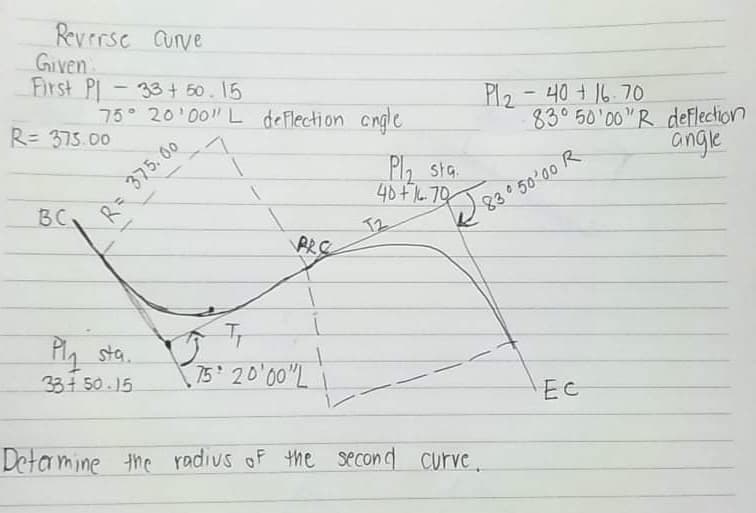 Reverse Curve
Given:
First PI - 33 + 50.15
75° 20' 00" L deflection angle
R = 375.00
PI2 - 40 + 16.70
83° 50' 00" R deflection angle
R = 375.00
PI2 sta.
40 + 16.70
83° 50' 00 R
BC
T2
PRC
T1
PI1 sta.
33 + 50.15
75° 20' 00" L
EC
Determine the radius of the second curve.